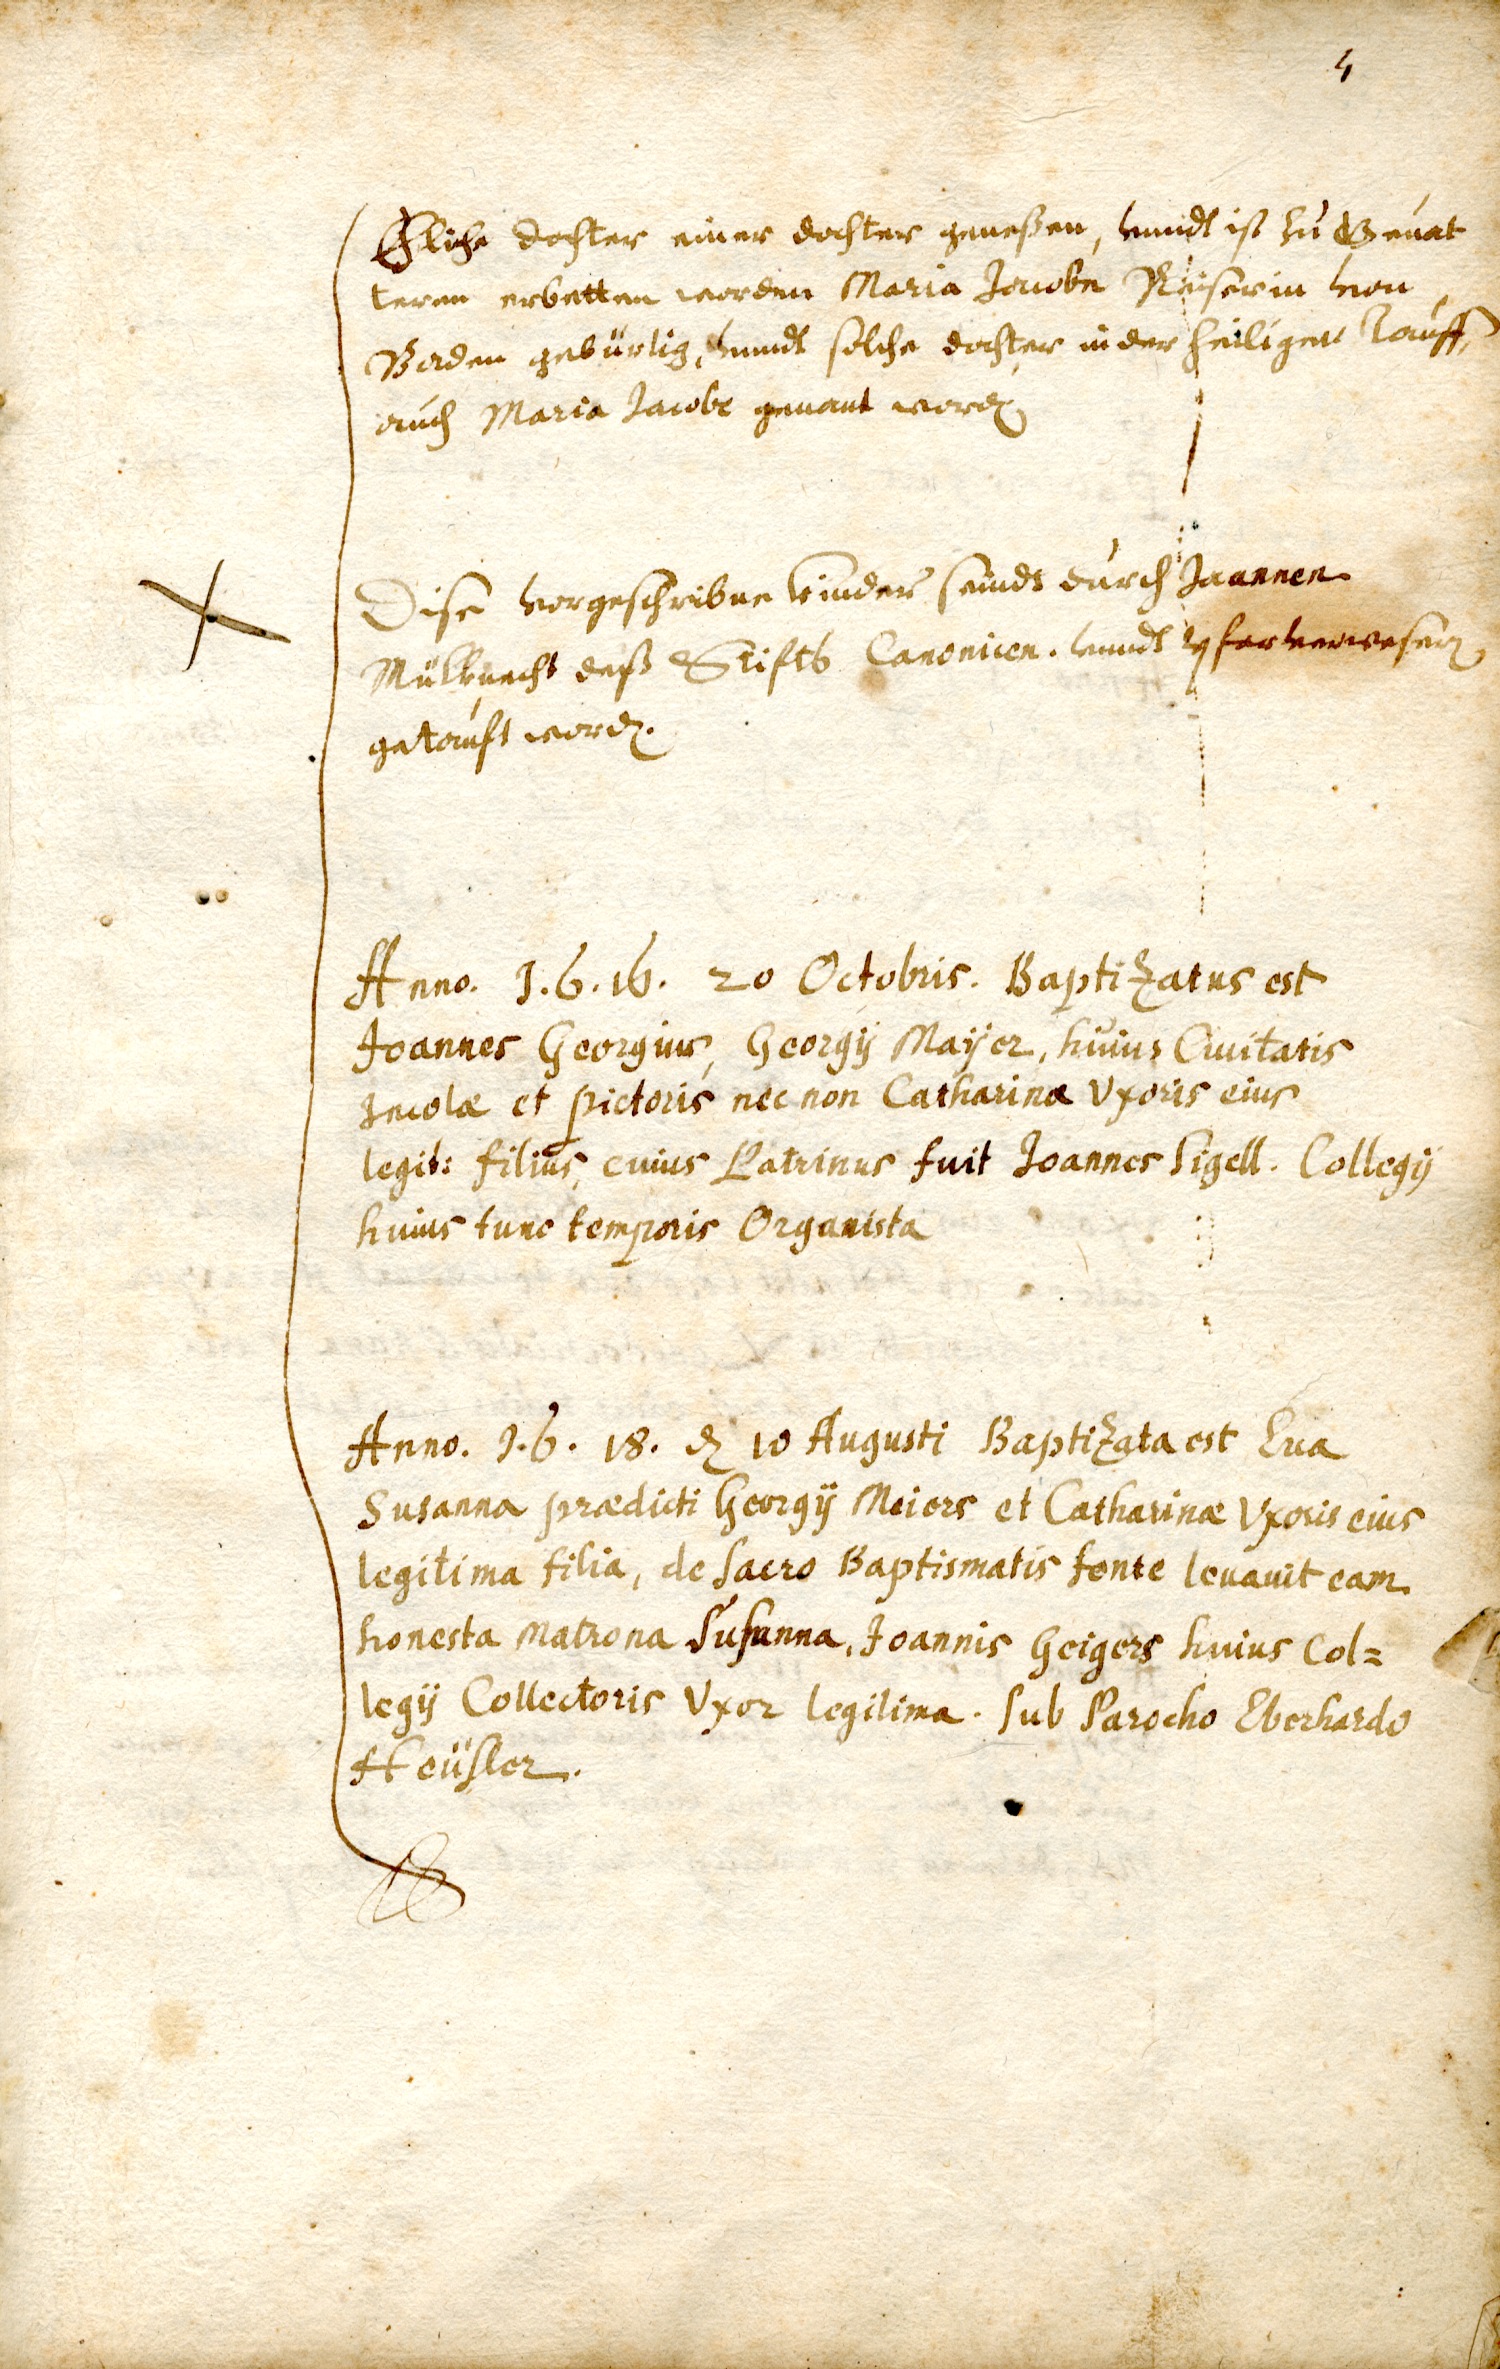 4
Ehliche dochter einer dochter genesen, vnndt ist zu Geuat
teren erbetten worden Maria Jacobe Keiserin von
Baden gebürtig, vnndt solche dochter in der heiligen Tauff,
auch Maria Jacobe genant word
Dise vorgeschribne Kinder seindt durch Joannen
Müllknecht deß Stifts Canonicen. vnndt Pfarverweser
getauft word.
Anno. 1.6.16. 20 Octobris. Baptizatus est
Joannes Georgius, Georgij Maijer, huius Ciuitatis
Incolæ et pictoris nec non Catharinæ Vxoris eius
legit: filius, cuius Patrinus fuit Joannes Sigell. Collegij
huius tunc temporis Organista
Anno. 1.6. 18. d 10 Augusti Baptizata est Eua
Susanna prædicti Georgij Meiers et Catharinæ Vxoris eius
legitima filia, de Sacro Baptismatis fonte leuauit eam
honesta Matrona Susanna, Joannis Geigers huius Col=
legij Collectoris Vxor legitima. Sub Parocho Eberhardo
Heüsler.